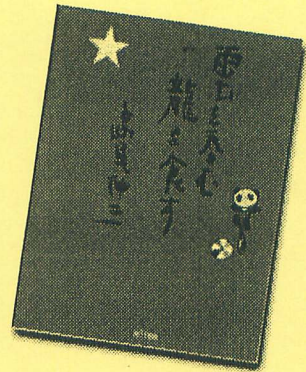 雲を呑む
龍を食す
島尾伸三